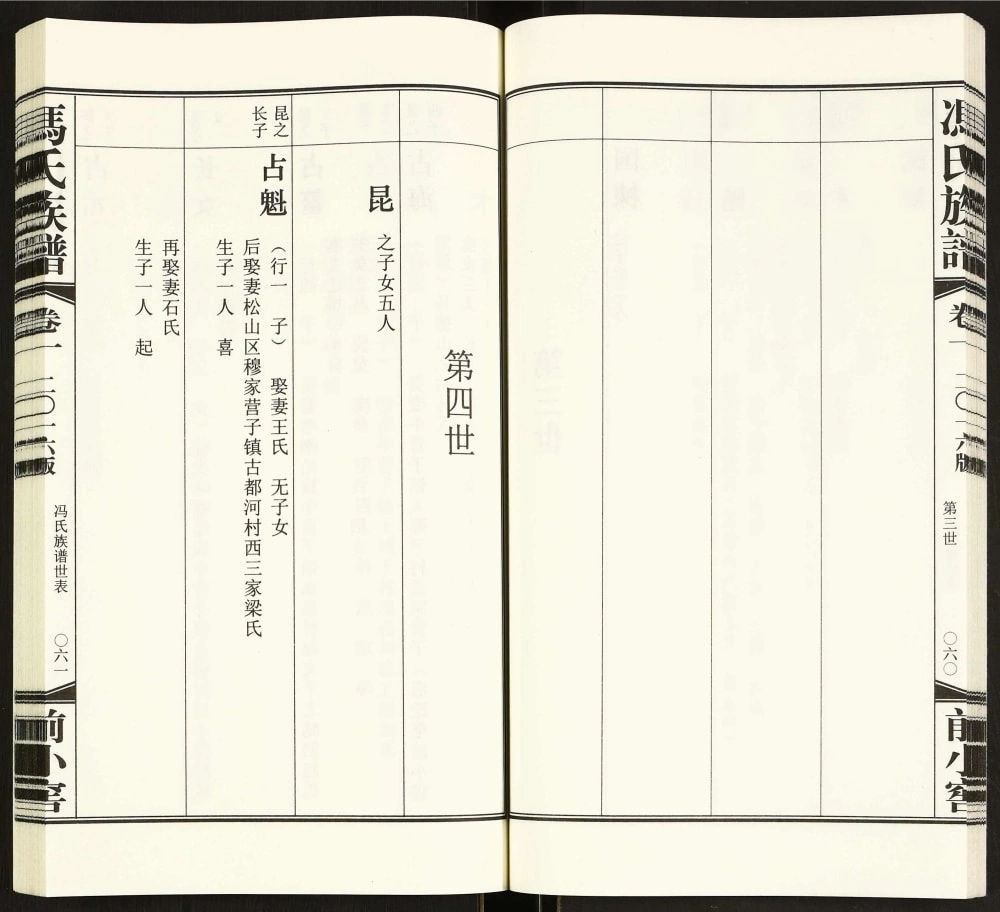 馮氏族譜
卷一
二〇一六版
第三世
〇六〇
前小窖
第四世
昆
之子女五人
昆之
长子
占魁
（行一　子）　娶妻王氏　无子女
后娶妻松山区穆家营子镇古都河村西三家梁氏
生子一人　喜
再娶妻石氏
生子一人　起
馮氏族譜
卷一
二〇一六版
冯氏族谱世表
〇六一
前小窖